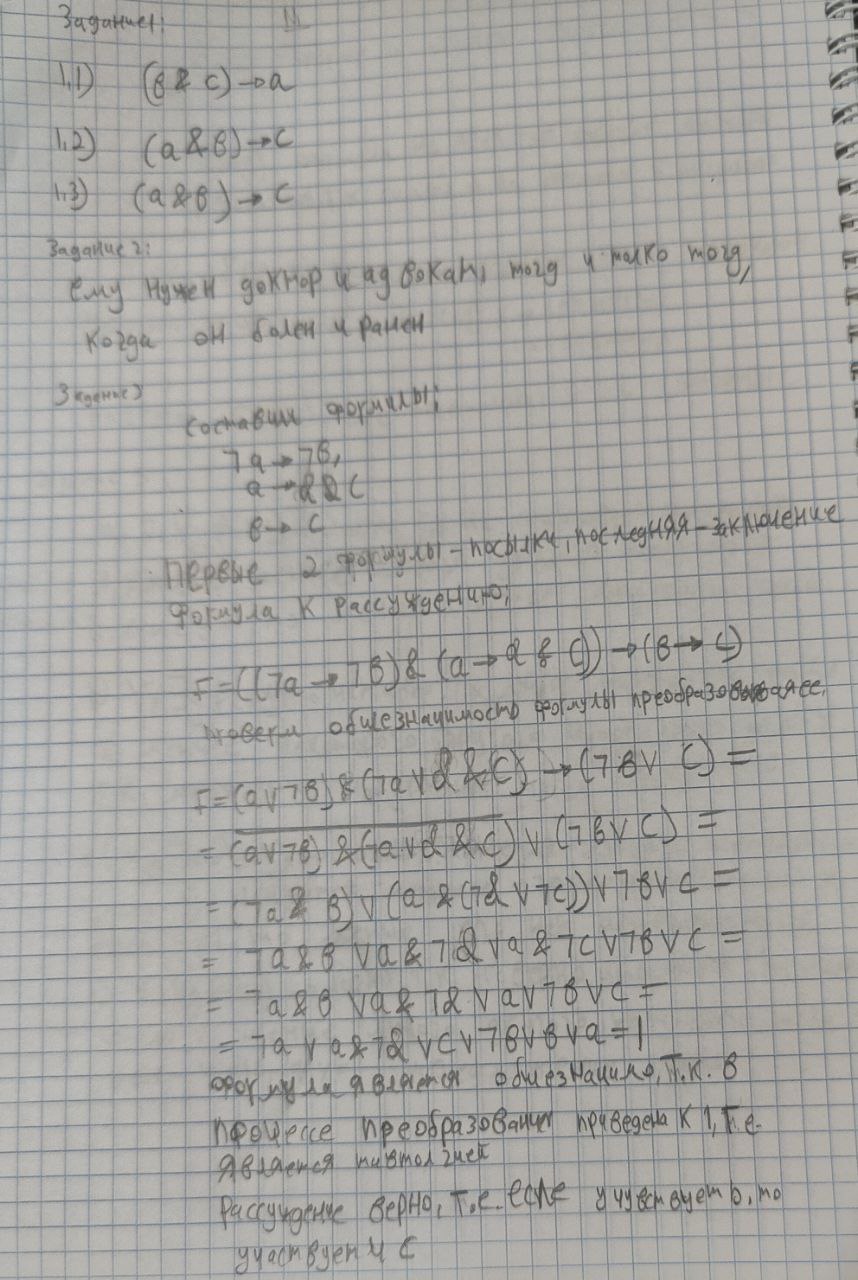 Задание1:
1,1) (в & c) → a
1,2) (a & в) → c
1,3) (a & в) → c
Задание 2:
ему нужен доктор и адвокат, тогд и толко тогд,
когда он болен и ранен
Задание3
составим формулы:
⌉a → ⌉в,
a → d & c
в → c
Первые 2 формулы - посылки, последняя - заключение
формула к рассуждению:
F = ((⌉a → ⌉в) & (a → d & c)) → (в → c)
проверим общезначимость формулы преобразовывая ее.
F = (a∨⌉в) & (⌉a∨d & c) → (⌉в∨ c) =
= (a∨⌉в) & (⌉a∨d & c) ∨ (⌉в∨c) =
= (⌉a & в) ∨ (a & (⌉d ∨⌉c))∨⌉в∨c =
= ⌉a & в ∨a & ⌉d ∨a & ⌉c∨⌉в∨c =
= ⌉a & в ∨a & ⌉d ∨a∨⌉в∨c =
= ⌉a ∨ a & ⌉d ∨c∨⌉в∨в∨a = 1
формула является общезначимо, т.к. в
процессе преобразования приведена к 1, т.е.
является
Рассуждение верно, т.е. если учувствует b, то
участвует и c